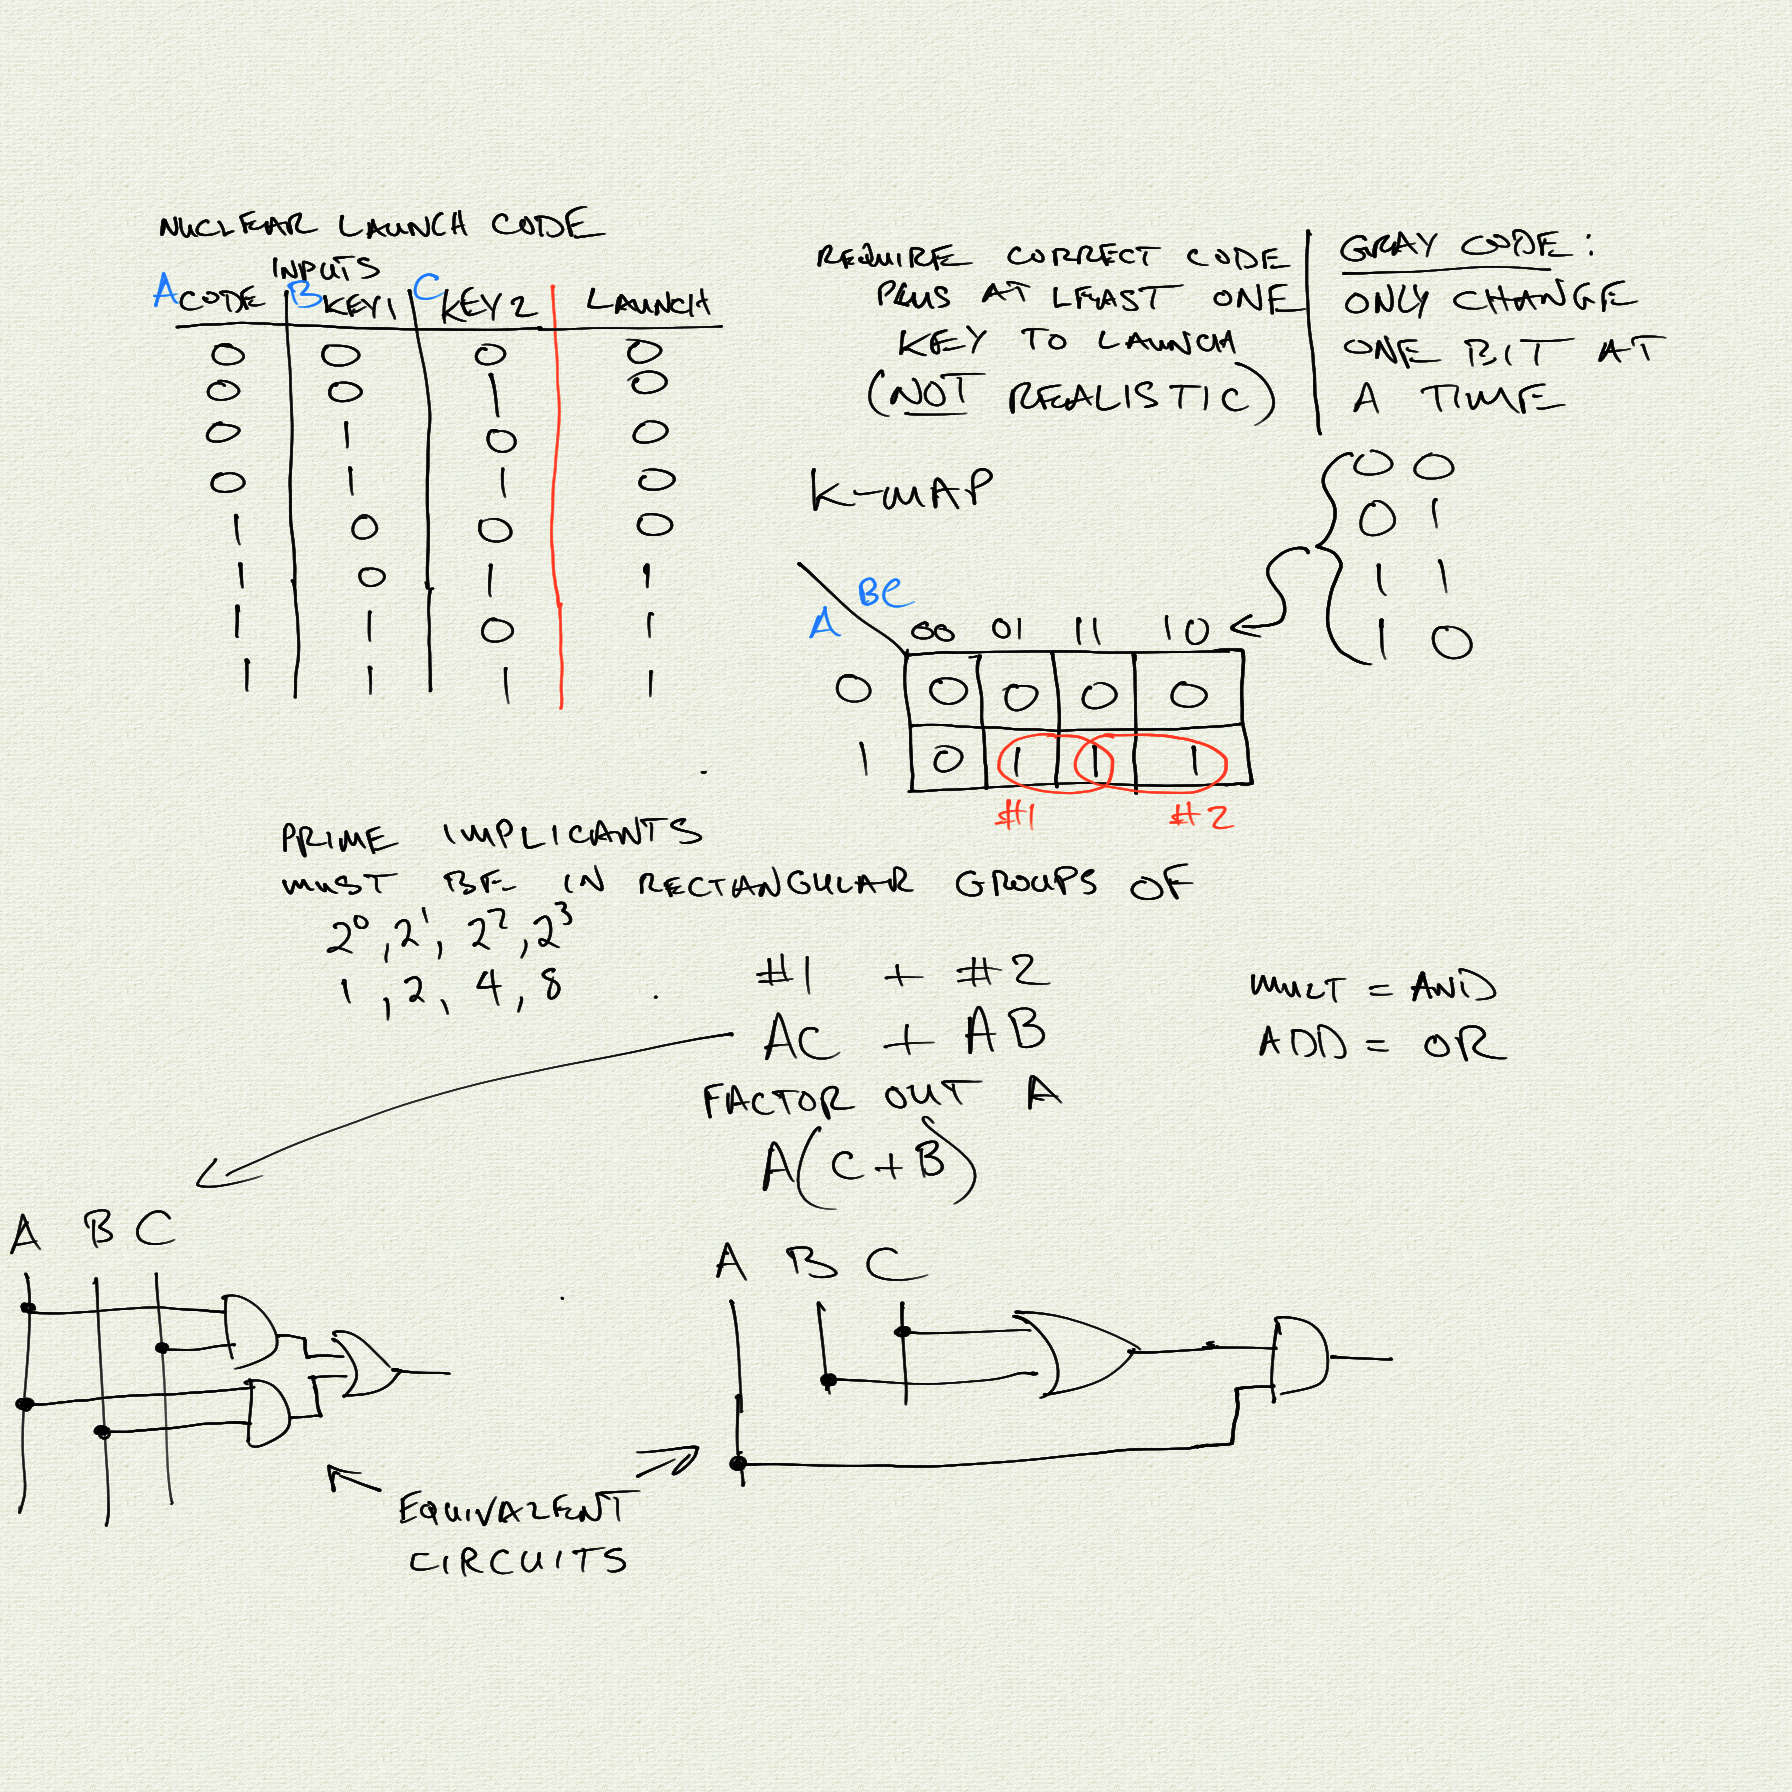 NUCLEAR LAUNCH CODE
INPUTS
A CODE B KEY1 C KEY 2 LAUNCH
0 0 0 0
0 0 1 0
0 1 0 0
0 1 1 0
1 0 0 0
1 0 1 1
1 1 0 1
1 1 1 1
REQUIRE CORRECT CODE
PLUS AT LEAST ONE
KEY TO LAUNCH
(NOT REALISTIC)
GRAY CODE:
ONLY CHANGE
ONE BIT AT
A TIME
0 0
0 1
1 1
1 0
K-MAP
BC
A 00 01 11 10
0 0 0 0 0
1 0 1 1 1
#1 #2
PRIME IMPLICANTS
MUST BE IN RECTANGULAR GROUPS OF
2⁰, 2¹, 2², 2³
1, 2, 4, 8
#1 + #2
AC + AB
FACTOR OUT A
A(C+B)
MULT = AND
ADD = OR
A B C
A B C
EQUIVALENT
CIRCUITS